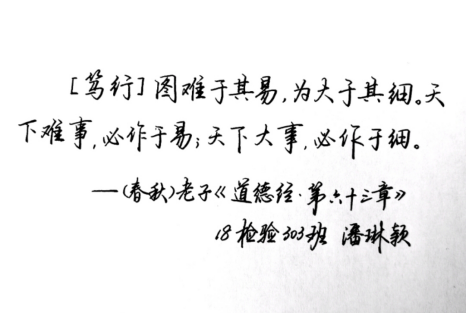 [笃行]图难于其易,为大于其细。天
下难事,必作于易;天下大事,必作于细。
—(春秋)老子《道德经·第六十三章》
18检验303班 潘琳颖